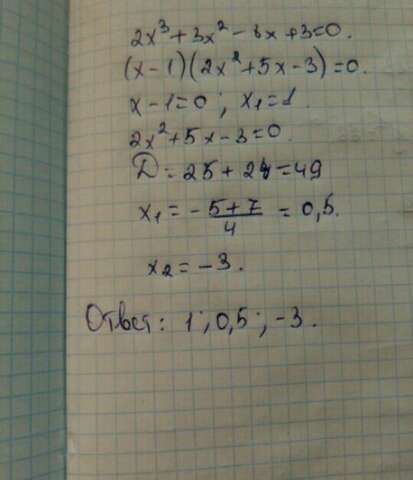 2x³+3x²-8x+3=0.
(x-1)(2x²+5x-3)=0.
x-1=0; x₁=1.
2x²+5x-3=0.
D=25+24=49
x₁=-5+7/4=0,5.
x₂=-3.
Ответ: 1; 0,5; -3.